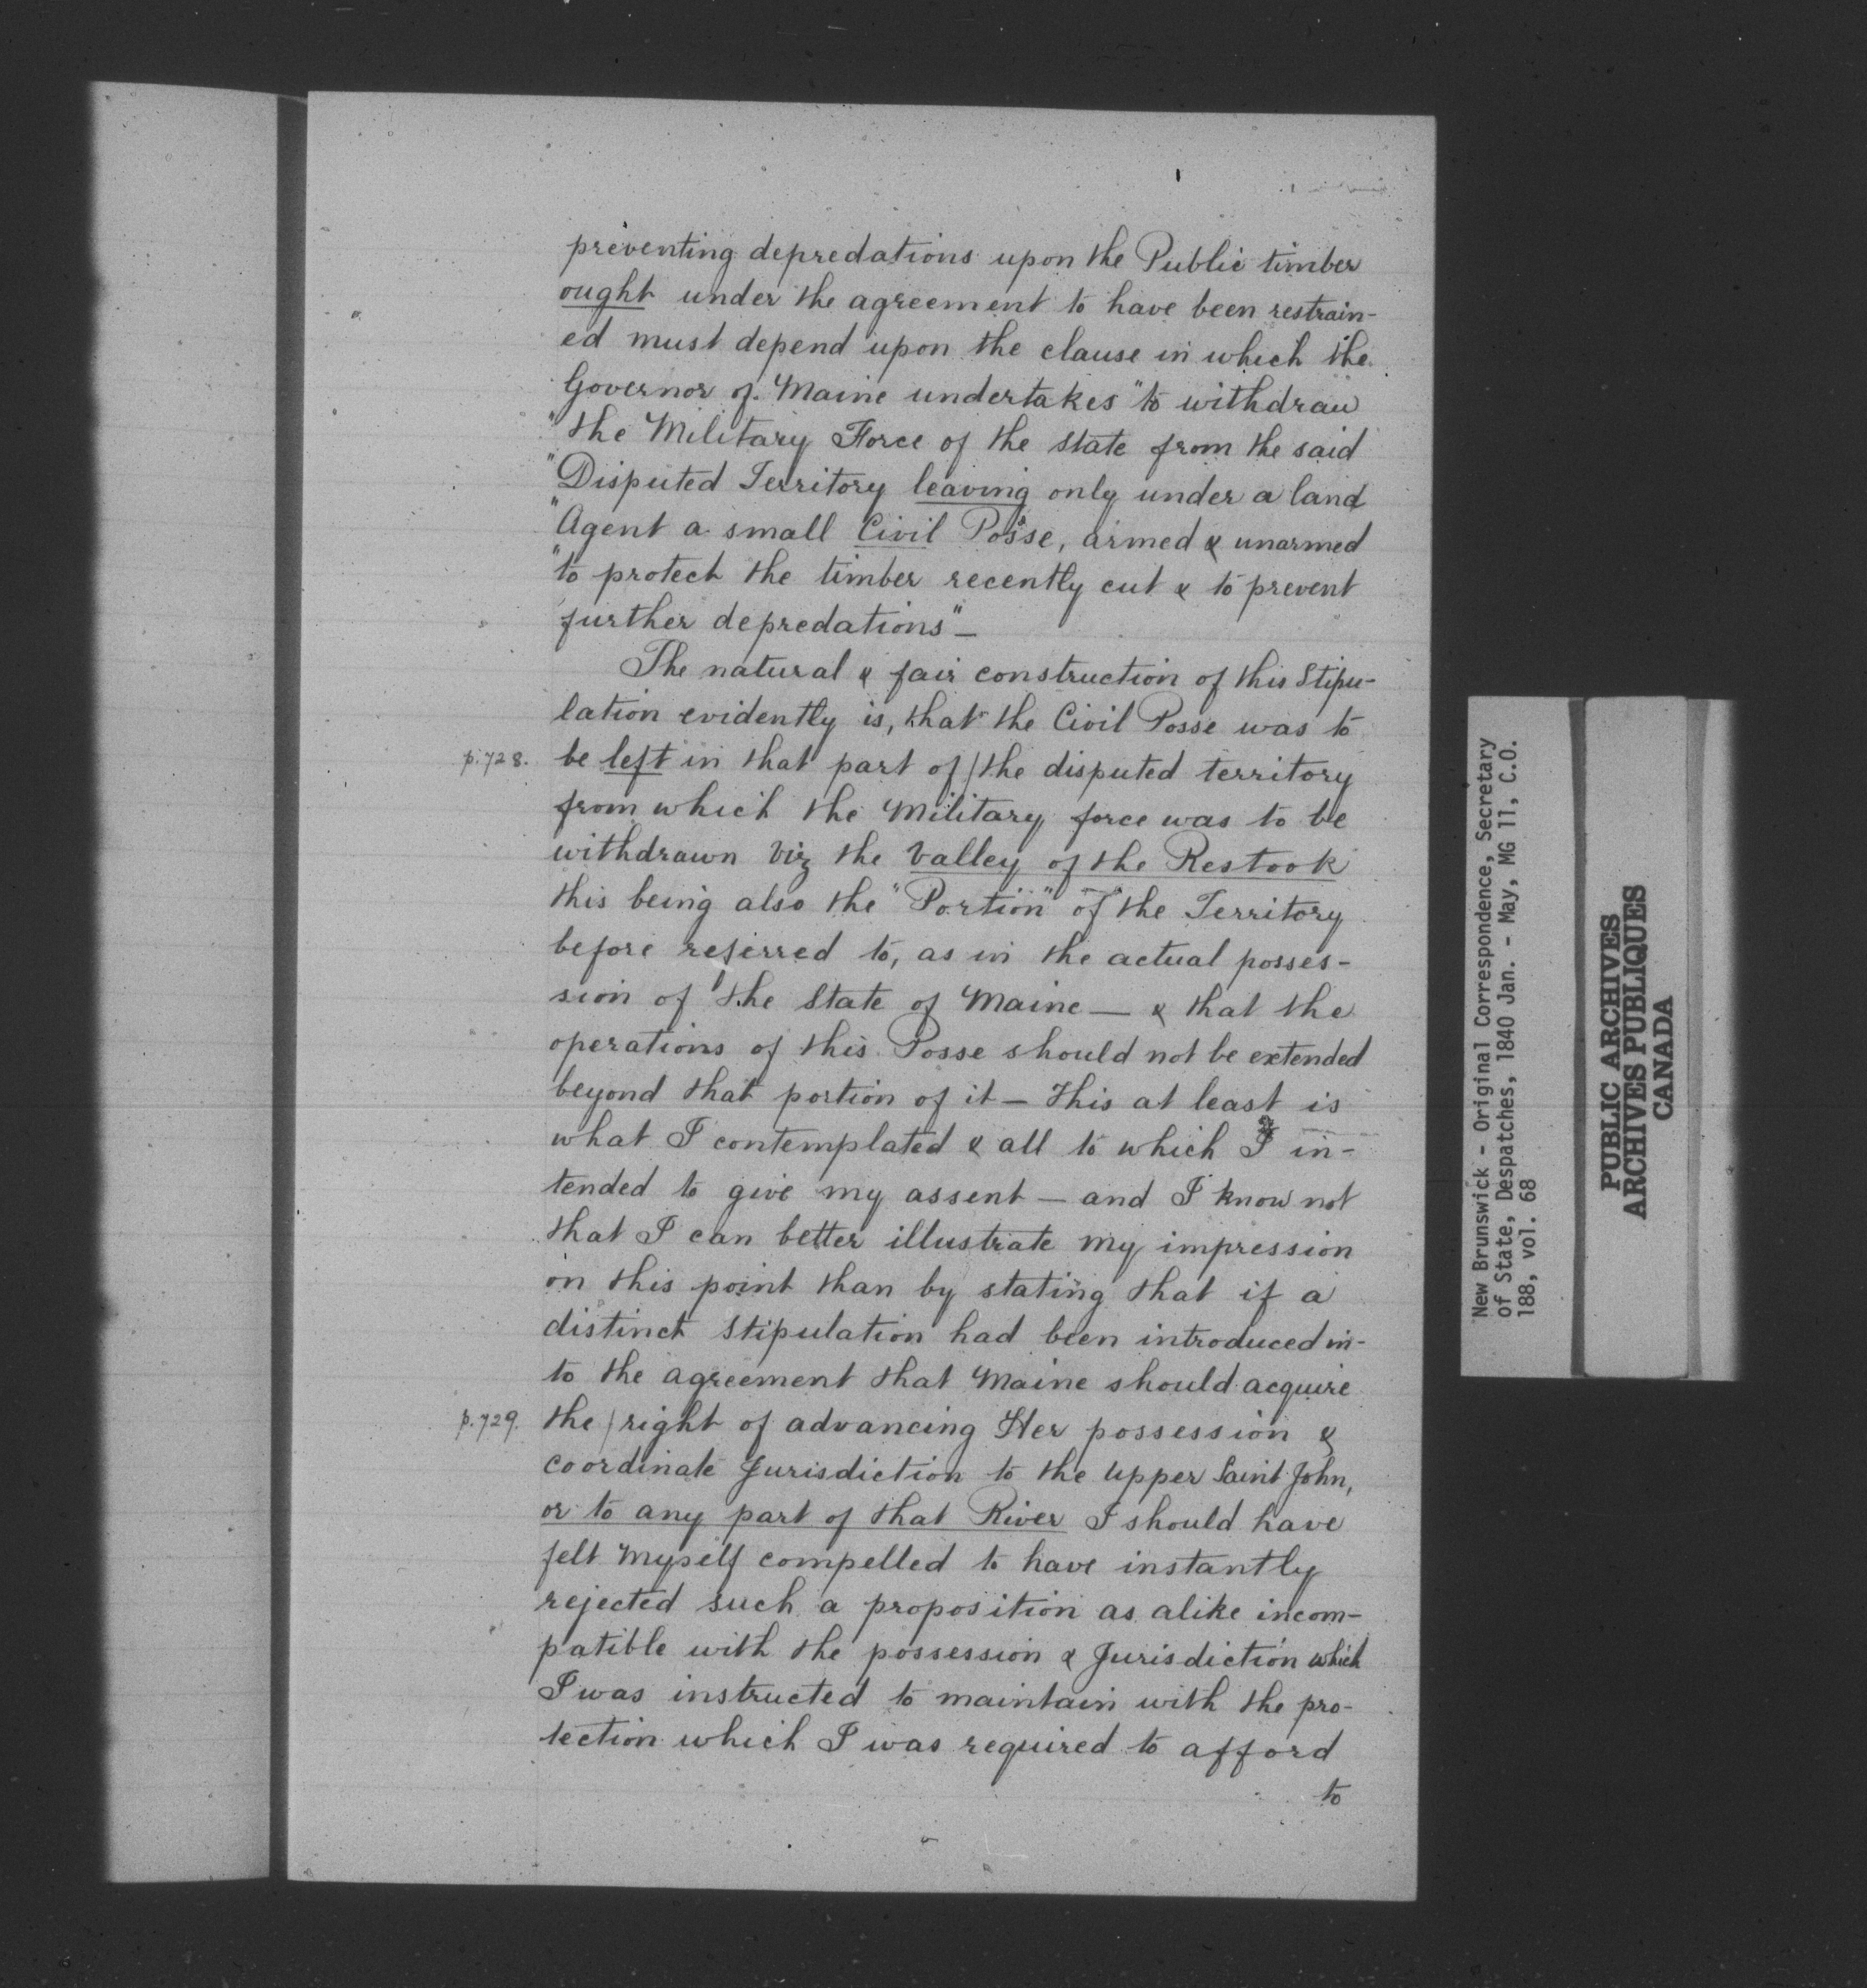 preventing depredations upon the Public timber
ought under the agreement to have been restrain-
ed must depend upon the clause in which the
Governor of Maine undertakes "to withdraw
"the Military Force of the State from the said
"Disputed Territory leaving only under a land
"Agent a small Civil Posse, armed & unarmed
"to protect the timber recently cut & to prevent
further depredations"—
The natural & fair construction of this Stipu-
lation evidently is, that the Civil Posse was to
p.728. be left in that part of /the disputed territory
from which the Military force was to be
withdrawn Viz the Valley of the Restook
this being also the "Portion" of the Territory
before referred to, as in the actual posses-
sion of the State of Maine — & that the
operations of this Posse should not be extended
beyond that portion of it — this at least is
what I contemplated & all to which I in-
tended to give my assent — and I know not
that I can better illustrate my impression
on this point than by stating that if a
distinct Stipulation had been introduced in-
to the agreement that Maine should acquire
p.729. the /right of advancing Her possession &
coordinate Jurisdiction to the Upper Saint John,
or to any part of that River I should have
felt myself compelled to have instantly
rejected such a proposition as alike incom-
patible with the possession & Jurisdiction which
I was instructed to maintain with the pro-
tection which I was required to afford
to
New Brunswick - Original Correspondence, Secretary
of State, Despatches, 1840 Jan. - May, MG 11, C.O.
188, vol. 68
PUBLIC ARCHIVES
ARCHIVES PUBLIQUES
CANADA